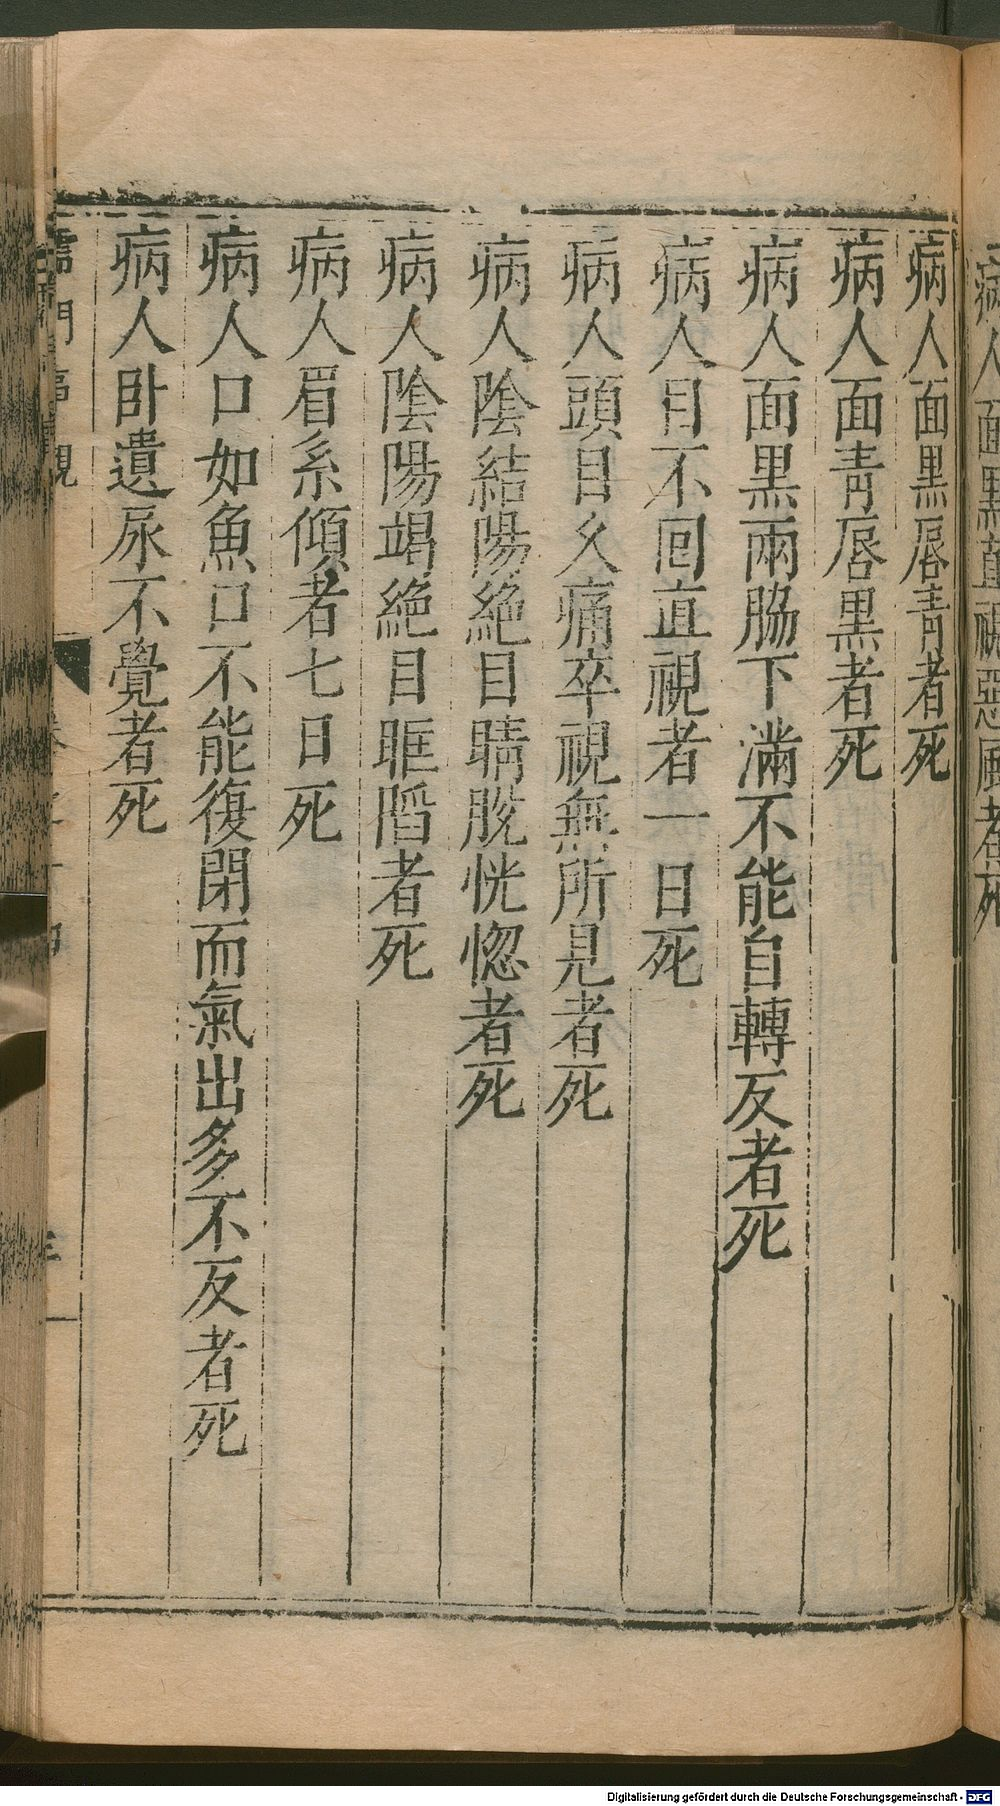 病人面黑直視惡風者死
病人面黑唇青者死
病人面青唇黑者死
病人面黑兩脇下滿不能自轉反者死
病人目不回直視者一日死
病人頭目久痛卒視無所見者死
病人陰結陽絕目睛脫恍惚者死
病人陰陽竭絕目眶陷者死
病人眉系傾者七日死
病人口如魚口不能復閉而氣出多不反者死
病人臥遺尿不覺者死
儒門事親
Digitalisierung gefördert durch die Deutsche Forschungsgemeinschaft - DFG